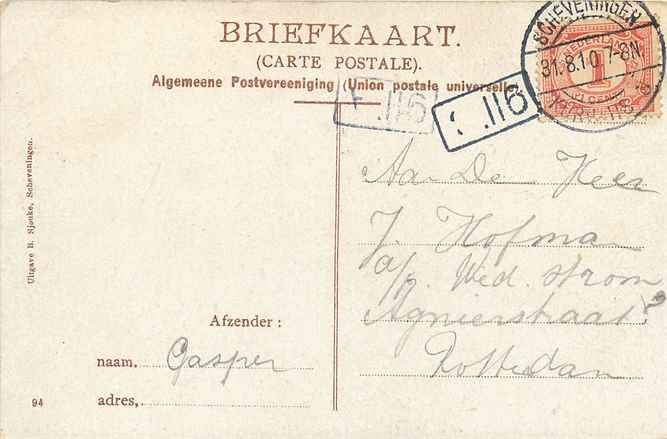 BRIEFKAART.
(CARTE POSTALE).
Algemeene Postvereeniging (Union postale universelle)
SCHEVENINGEN
31.8.10 7-8N
NEDERLAND
1
116
116
Uitgave B. Sjouke, Scheveningen.
Aa De Heer
J. Hofman
a/z. Wed. Strom
Agnierstraat
Rotterdam
Afzender :
naam, Gasper
adres,
94